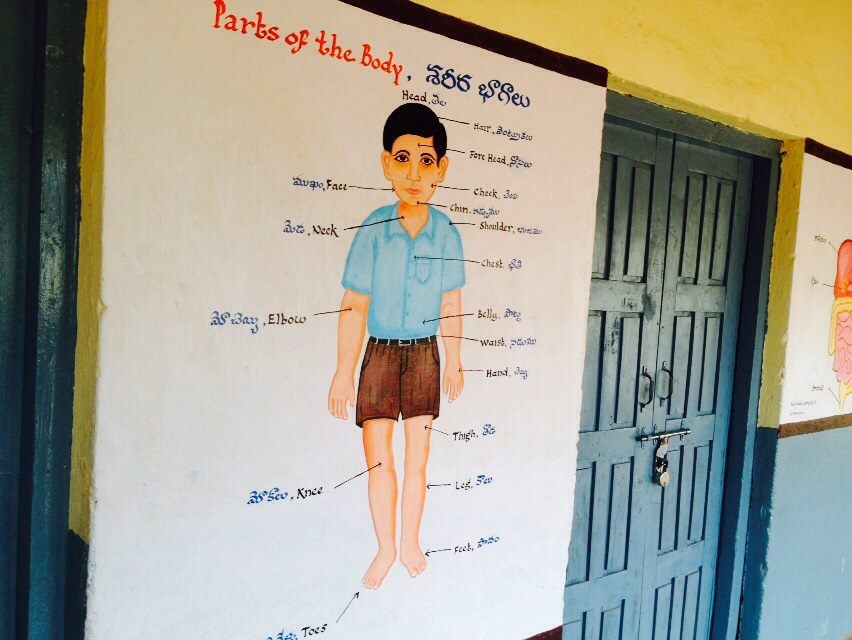 Parts of the Body, శరీర భాగాలు
Head, తల
Hair, వెంట్రుకలు
Fore Head, నొసలు
ముఖం, Face
Cheek, చెంప
Chin, గడ్డము
మెడ, Neck
Shoulder, భుజము
Chest, ఛాతి
మోచెయ్యి, Elbow
Belly, పొట్ట
Waist, నడుము
Hand, చెయ్యి
Thigh, తొడ
మోకాలు, Knee
Leg, కాలు
Feet, పాదం
Toes